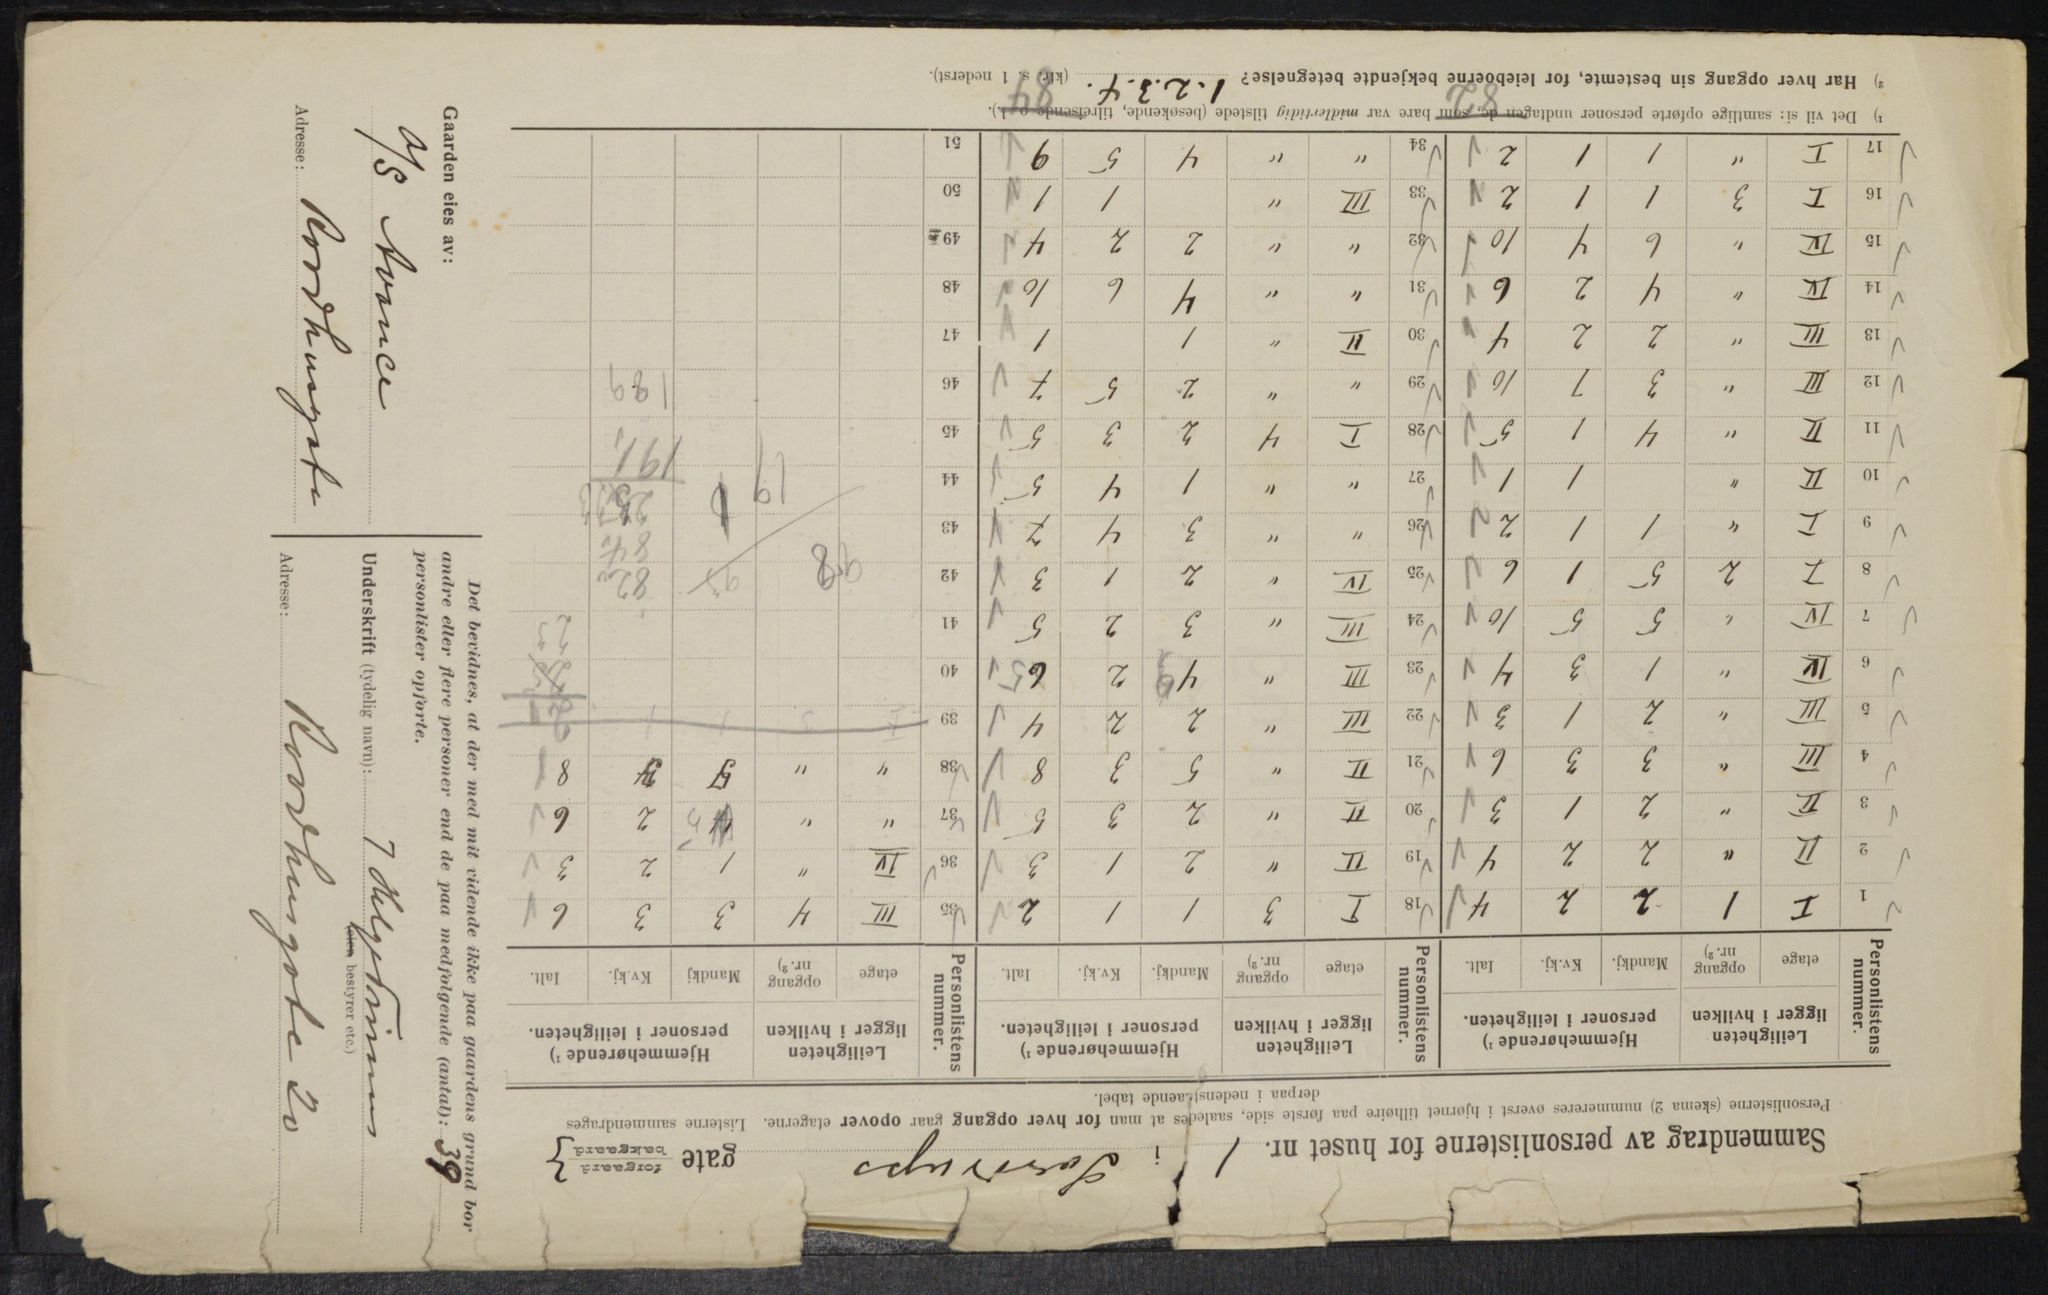 Sammendrag av personlisterne for huset nr. 1 i Sorrups gate { forgaard bakgaard
Personlisterne (skema 2) nummereres øverst i hjørnet tilhøire paa første side, saaledes at man for hver opgang gaar opover etagerne. Listerne sammendrages
derpaa i nedenstaaende tabel.
Personlistens nummer. | Leiligheten ligger i hvilken etage | opgang nr.²) | Hjemmehørende¹) personer i leiligheten. Mandkj. | Kv.kj. | Ialt.
1 I 1 2 2 4
2 II " 2 2 4
3 II " 2 1 3
4 III " 3 3 6
5 III " 2 1 3
6 IV " 1 3 4
7 IV " 5 5 10
8 I 2 5 1 6
9 I " 1 1 2
10 II " 1 1
11 II " 4 1 5
12 III " 3 7 10
13 III " 2 2 4
14 IV " 4 2 6
15 IV " 6 4 10
16 I 3 1 1 2
17 I " 1 1 2
82
Personlistens nummer. | Leiligheten ligger i hvilken etage | opgang nr.²) | Hjemmehørende¹) personer i leiligheten. Mandkj. | Kv.kj. | Ialt.
18 I 3 1 1 2
19 II " 2 1 3
20 II " 2 3 5
21 II " 5 3 8
22 III " 2 2 4
23 III " 4 2 6 5
24 III " 3 2 5
25 IV " 2 1 3
26 " " 3 4 7
27 " " 1 4 5
28 I 4 2 3 5
29 " " 2 5 7
30 II " 1 1
31 " " 4 6 10
32 " " 2 2 4
33 III " 1 1
34 " " 4 5 9
84
Personlistens nummer. | Leiligheten ligger i hvilken etage | opgang nr.²) | Hjemmehørende¹) personer i leiligheten. Mandkj. | Kv.kj. | Ialt.
35 III 4 3 3 6
36 IV " 1 2 3
37 " " 4 2 6
38 " " 8
39
40
41
42 98 82
43 84
44 19 25
45 191
46 189
47
48
49
50
51
¹) Det vil si: samtlige opførte personer undtagen de, som bare var midlertidig tilstede (besøkende, tilreisende o. l.).
²) Har hver opgang sin bestemte, for leieboerne bekjendte betegnelse? 1. 2. 3. 4. (kfr. s. 1 nederst).
Det bevidnes, at der med mit vidende ikke paa gaardens grund bor
andre eller flere personer end de paa medfølgende (antal): 39
personlister opførte.
Underskrift (tydelig navn):
bestyrer etc.)
Adresse: Raadhusgate 20
Gaarden eies av:
A/S Avance
Adresse: Raadhusgata